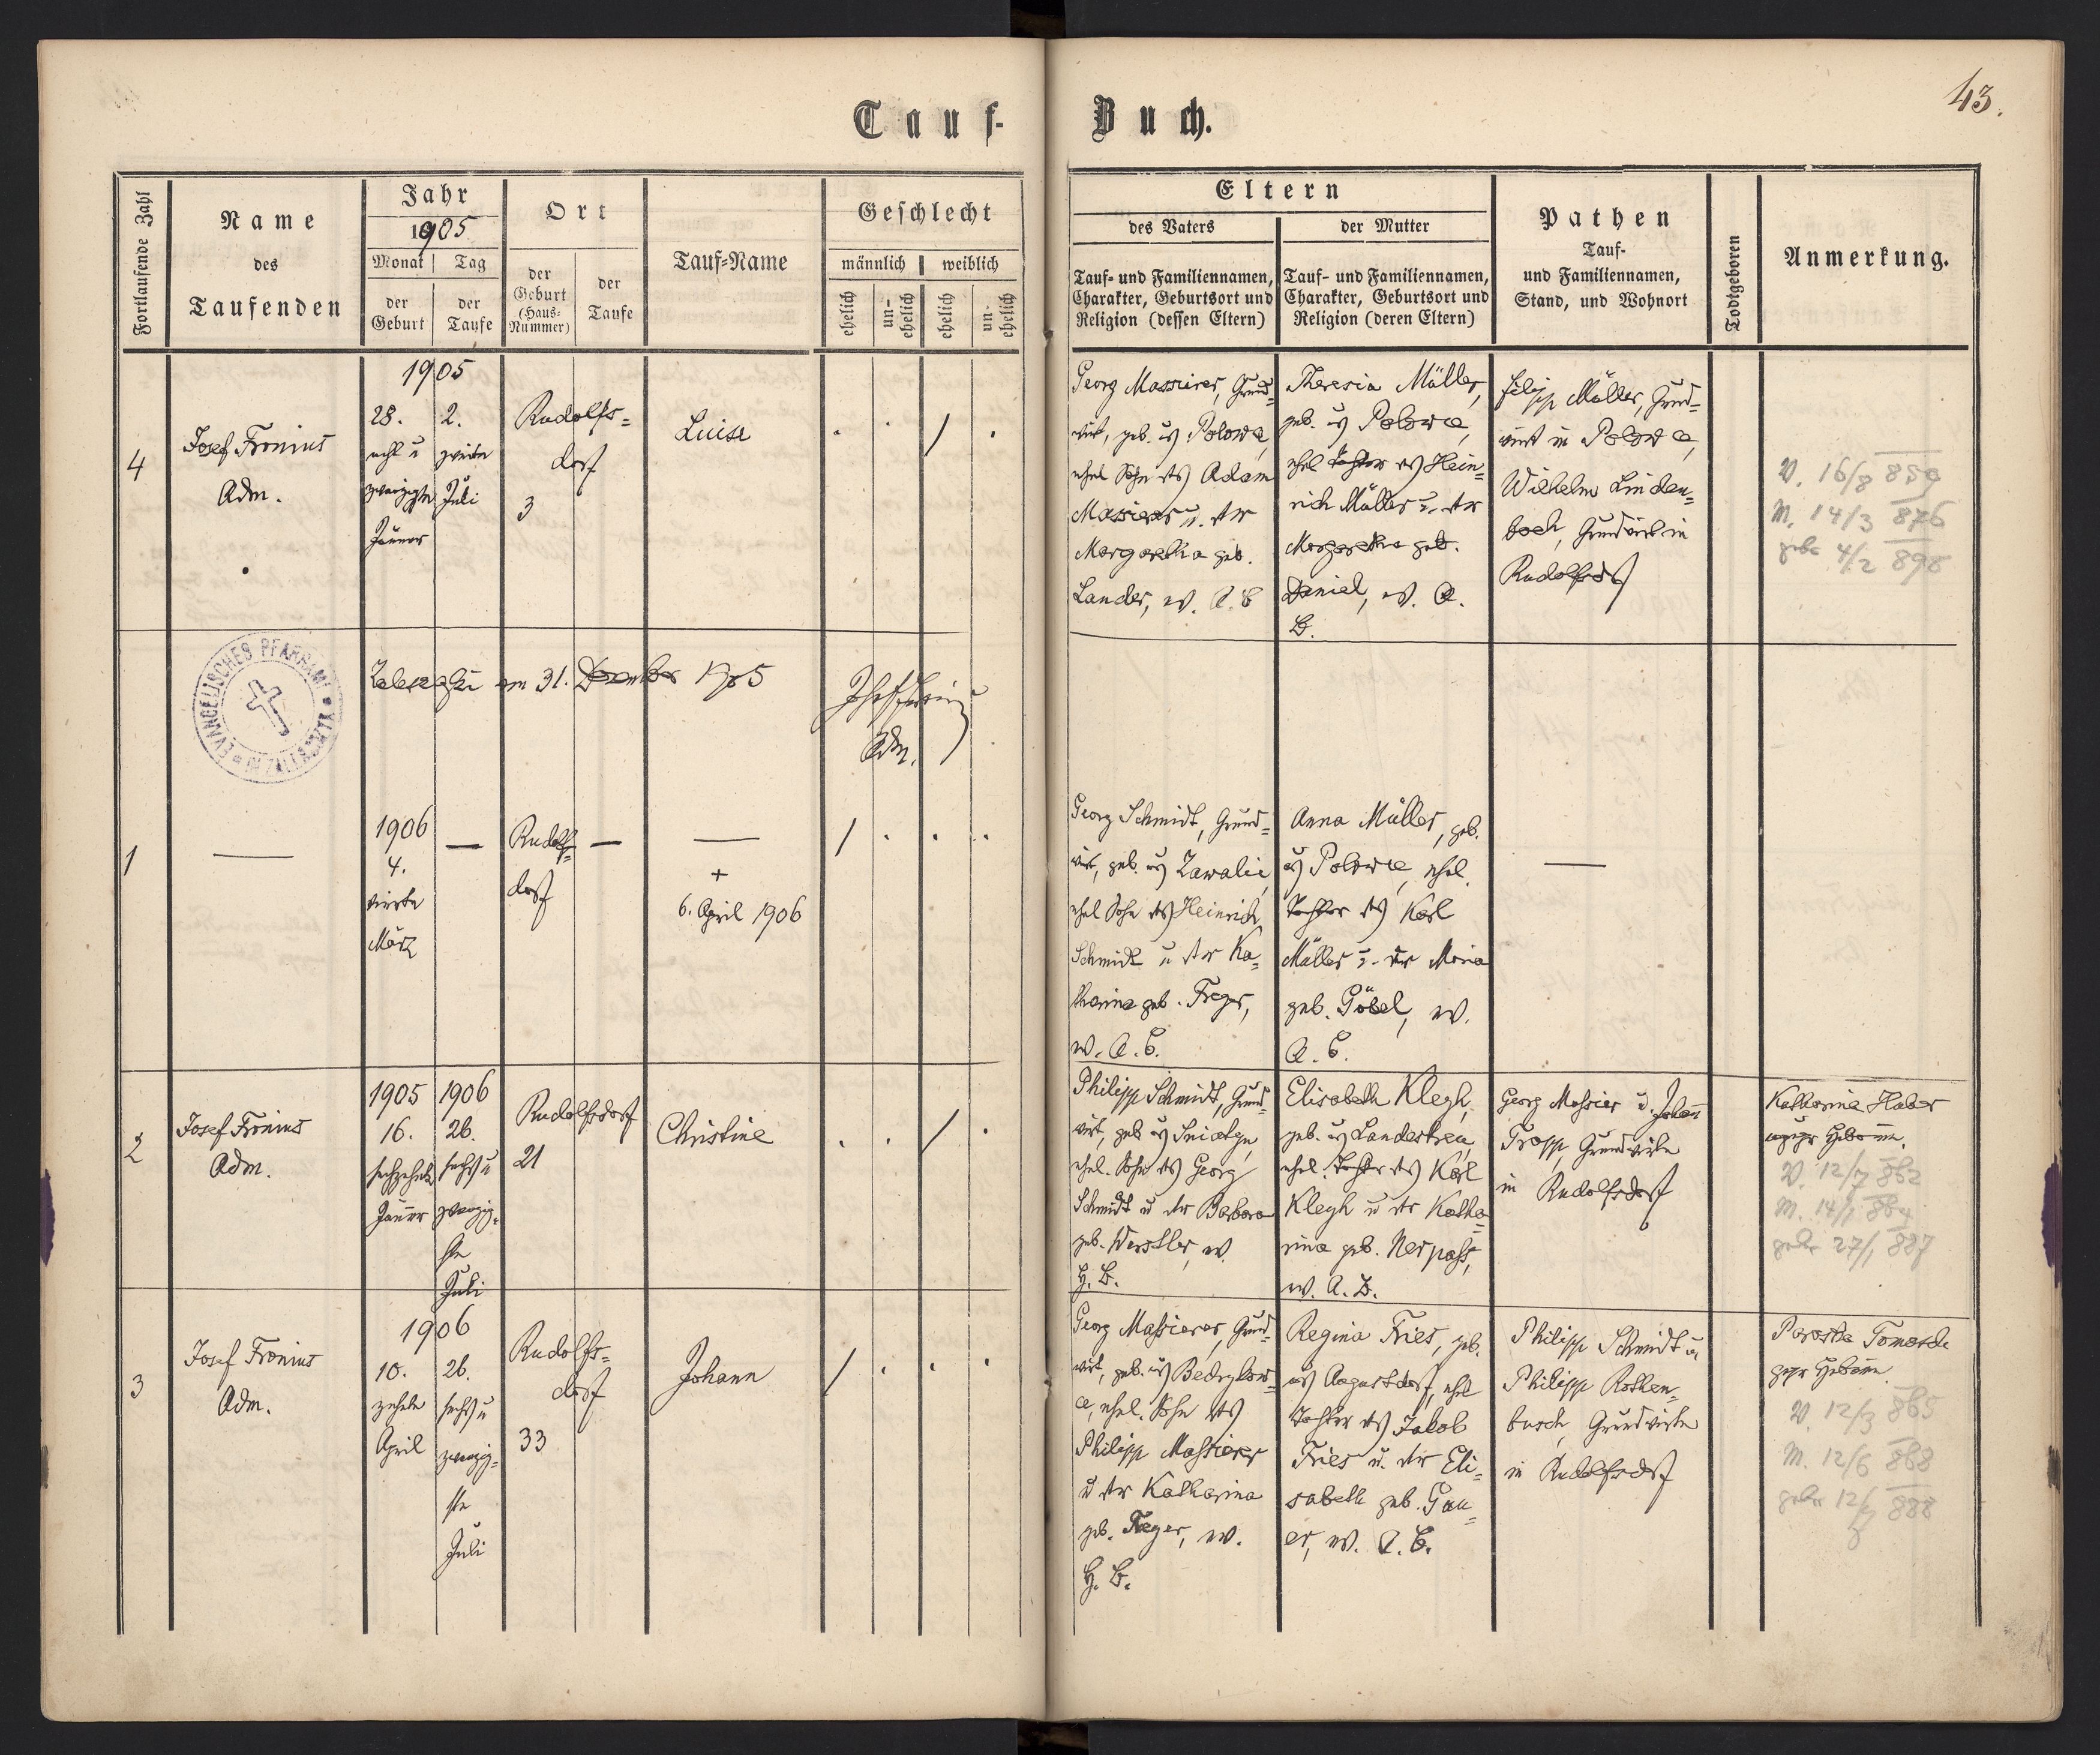 43.
Tauf-Buch.
Fortlaufende Zahl
Name
des
Taufenden
Jahr
1905
Monat
Tag
der
Geburt
der
Taufe
Ort
der
Geburt
(Haus-
Nummer)
der
Taufe
Tauf-Name
Geschlecht
männlich
weiblich
ehelich
un-
ehelich
ehelich
un-
ehelich
Eltern
des Vaters
Tauf- und Familiennamen,
Charakter, Geburtsort und
Religion (dessen Eltern)
der Mutter
Tauf- und Familiennamen,
Charakter, Geburtsort und
Religion (deren Eltern)
Pathen
Tauf-
und Familiennamen,
Stand, und Wohnort
Todtgeboren
Anmerkung.
4
Josef Fronius
Adm.
1905
28.
acht u
zwanzigste
Jänner
2.
zweite
Juli
Rudolfs=
dorf
3
Luise
/
Georg Massierer, Grund=
wirt, geb. in Polowce,
ehel Sohn des Adam
Massierer u. der
Margaretha geb.
Lander, ev. A. B
Theresia Müller,
geb. in Polowce,
ehel Tochter des Hein=
rich Müller u. der
Margaretha geb.
Daniel, ev. A.
B.
Filipp Müller, Grund=
wirt in Polowce,
Wilhelm Linden=
bach, Grundwirt in
Rudolfsdorf
V. 16/8 859
M. 14/3 876
getr 4/2 898
EVANGELISCHES PFARRAMT
Zaleszczyki am 31. Dezember 1905
Adm.
1
1906
4.
vierte
März
—
Rudolfs=
dorf
—
—
+
6. April 1906
/
Georg Schmidt, Grund=
wirt, geb. in Zawalie,
ehel Sohn des Heinrich
Schmidt u der Ka=
tharina geb. Freger,
ev. A. B.
Anna Müller, geb.
in Polowce, ehel.
Tochter des Karl
Müller u. der Maria
geb. Göbel, ev.
A. B.
—
2
Josef Fronius
Adm.
1905
16.
sechzehnte
Jänner
1906
26.
sechs u
zwanzig=
ste
Juli
Rudolfsdorf
21
Christine
/
Philipp Schmidt, Grund=
wirt, geb in Sniatyn,
ehel. Sohn des Georg
Schmidt u der Barbara
geb. Werstler, ev.
H. B.
Elisabeth Klegh,
geb. in Landestreu,
ehel. Tochter des Karl
Klegh u der Katha=
rina geb. Nerpass,
ev. A. B.
Georg Massier u. Johann
Tropp, Grundwirte
in Rudolfsdorf
Katharina Huber
Hebamme.
V. 12/7 862
M. 14/1 864
getr 27/1 887
3
Josef Fronius
Adm.
1906
10.
zehnte
April
26.
sechs u
zwanzig=
ste
Juli
Rudolfs=
dorf
33
Johann
/
Georg Massierer, Grund=
wirt, geb. in
ehel. Sohn des
Philipp Massierer
u der Katharina
geb. Freger, ev.
H. B.
Regina Fries, geb.
in Augustdorf, ehel
Tochter des Jakob
Fries u. der Eli=
sabeth geb. Gau=
er, ev. A. B.
Philipp Schmidt u
Philipp Rothen=
busch, Grundwirte
in Rudolfsdorf
Hebamme.
V. 12/3 865
M. 12/6 868
getr 888